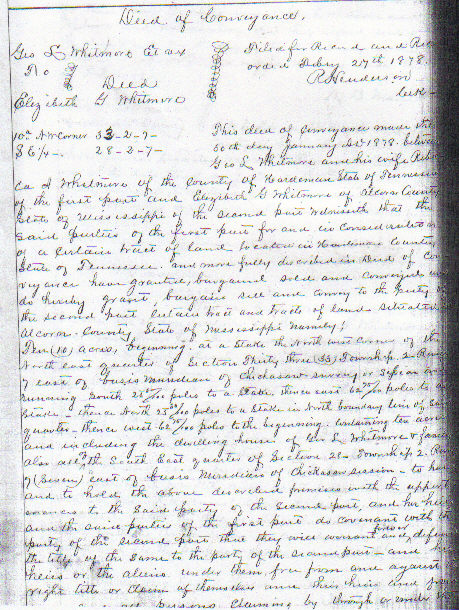 Deed of Conveyance.
Geo L Whitmore et ux
To
Deed
Elizabeth G Whitmore
Filed for Record and Rec
orded Febry 27th 1878.
R Henderson
Clerk
10 a N W Corner 33-2-7-
S E 1/4 - 28-2-7-
This deed of Conveyance made this
30th day January AD 1878 between
Geo L Whitmore and his wife Rebec
ca A Whitmore of the County of Hardeman State of Tennessee
of the first part and Elizabeth G Whitmore of Alcorn County
State of Mississippi of the second part Witnesseth that the
said parties of the first part for and in Consideration
of a Certain tract of land located in Hardeman County
State of Tennessee and more fully described in Deed of Con
veyance have granted, bargained sold and Conveyed and
do hereby grant, bargain sell and Convey to the party of
the second part Certain tract and tracts of land situated in
Alcorn County State of Mississippi Namely;
Ten (10) acres, beginning at a Stake the North west Corner of the
North east quarter of Section Thirty three (33) Township 2 Range
7 east of basis Meridian of Chickasaw survey or
running South 25 /100 poles to a Stake, thence east 62 /100 poles to a
Stake - thence North 25 /100 poles to a Stake in North boundary line of said
quarter - thence west 62 /100 poles to the beginning Containing ten acres
and including the dwelling house of Geo L Whitmore & family
also all the South East quarter of Section 28 - Township 2. Range
7 (Seven) east of basis Meridian of Chickasaw session - to have
and to hold the above described premises with the appurt
enances to the said party of the second part, and her heirs
and the said parties of the first part do covenant with the
party of the second part that they will warrant and defend
the title of the same to the party of the second part - and her
heirs or the aliens under them free from and against
right title or Claim of themselves and their heirs and
persons claiming by through or under